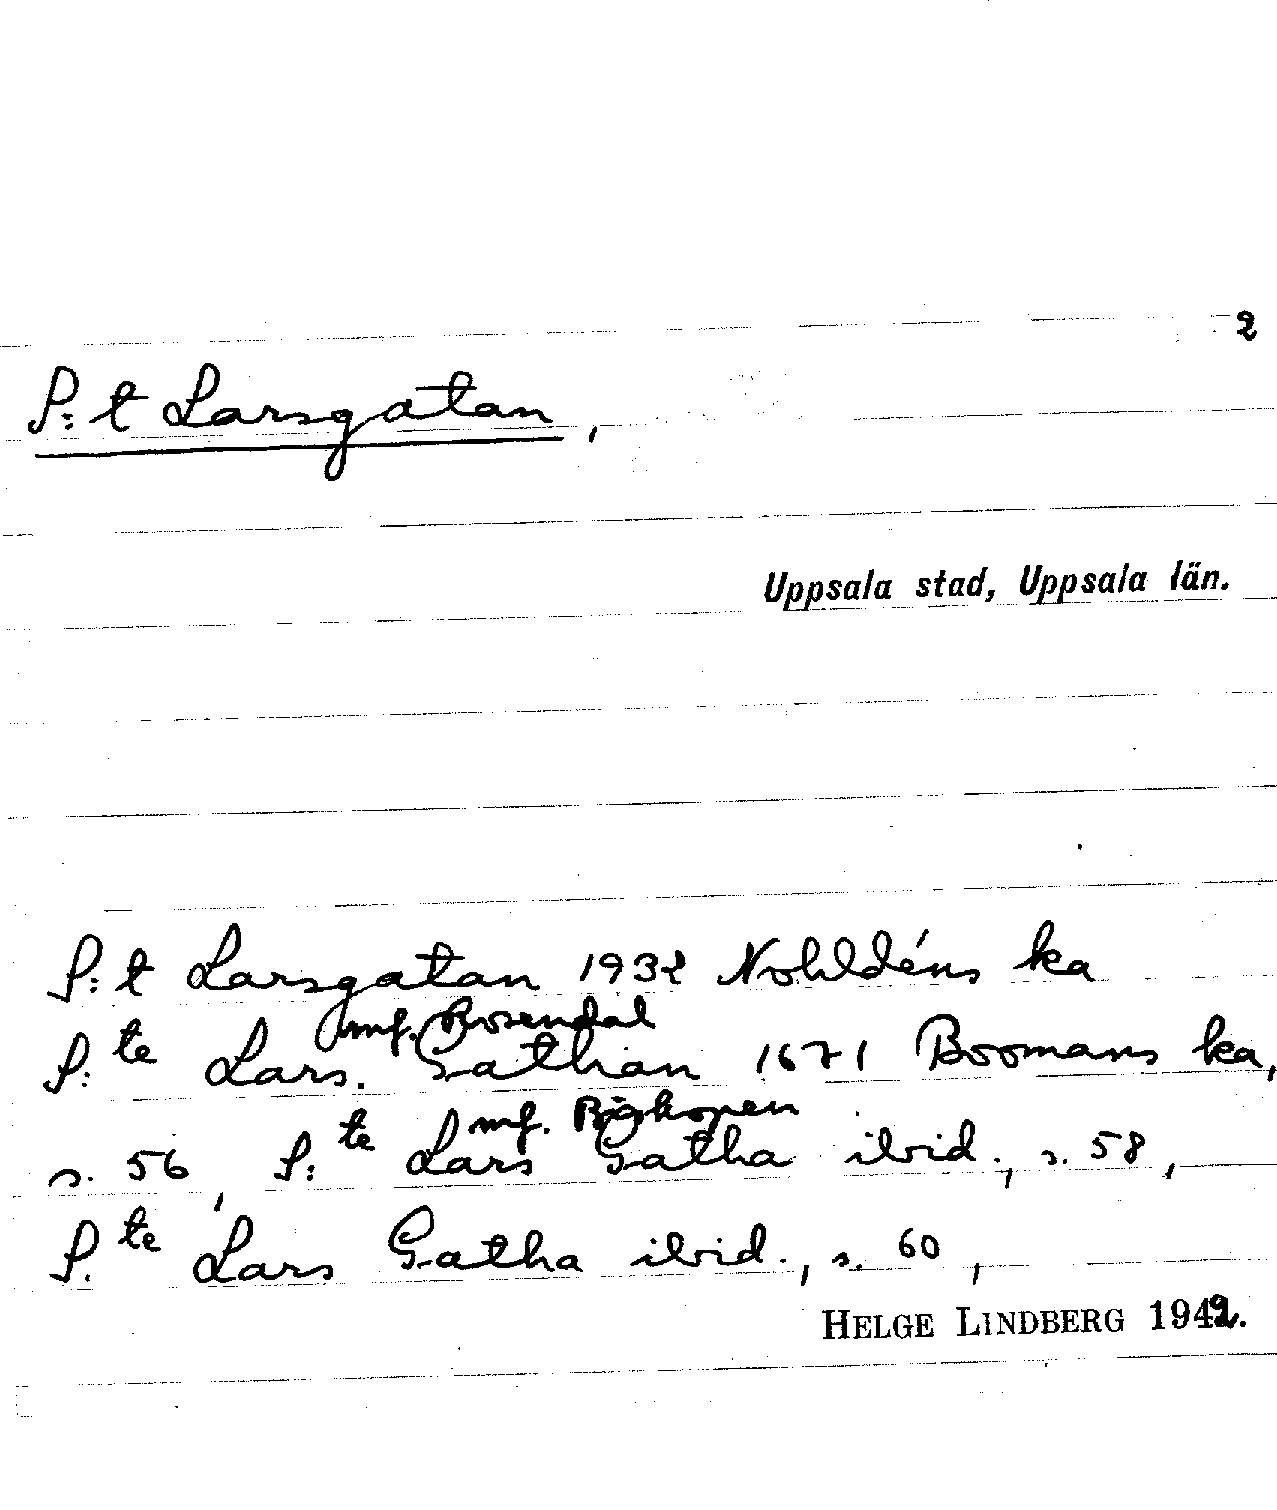 2
S:t Larsgatan,
Uppsala stad, Uppsala län.
S:t Larsgatan 1932 Nohldéns ka
mf. Rosendal
S:te Lars. Gathan 1671 Boomans ka,
mf.
s. 56, S:te Lars Gatha ibid., s. 58,
S:te Lars Gatha ibid., s. 60,
HELGE LINDBERG 1942.